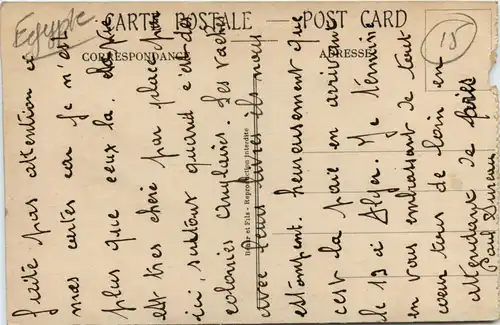 Egypte
CARTE POSTALE — POST CARD
CORRESPONDANCE
ADRESSE
15
Reproduction interdite
faite pas attention a
mes cartes car je n'ai
plus que ceux la.
est tres chère par place par
ici, surtout quand c'est des
colonies Anglaises. Les vaches
avec leurs livres ils nous
estampent. heureusement que
c'est la paie en arrivant
le 19 a Alger. Je termine
en vous embrassant de tout
cœur tous de loin en
attendant de
Paul